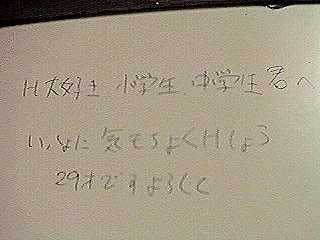 H大好き 小学生、中学生 君へ
いっしょに 気もちよくHしよう
29才です よろしく